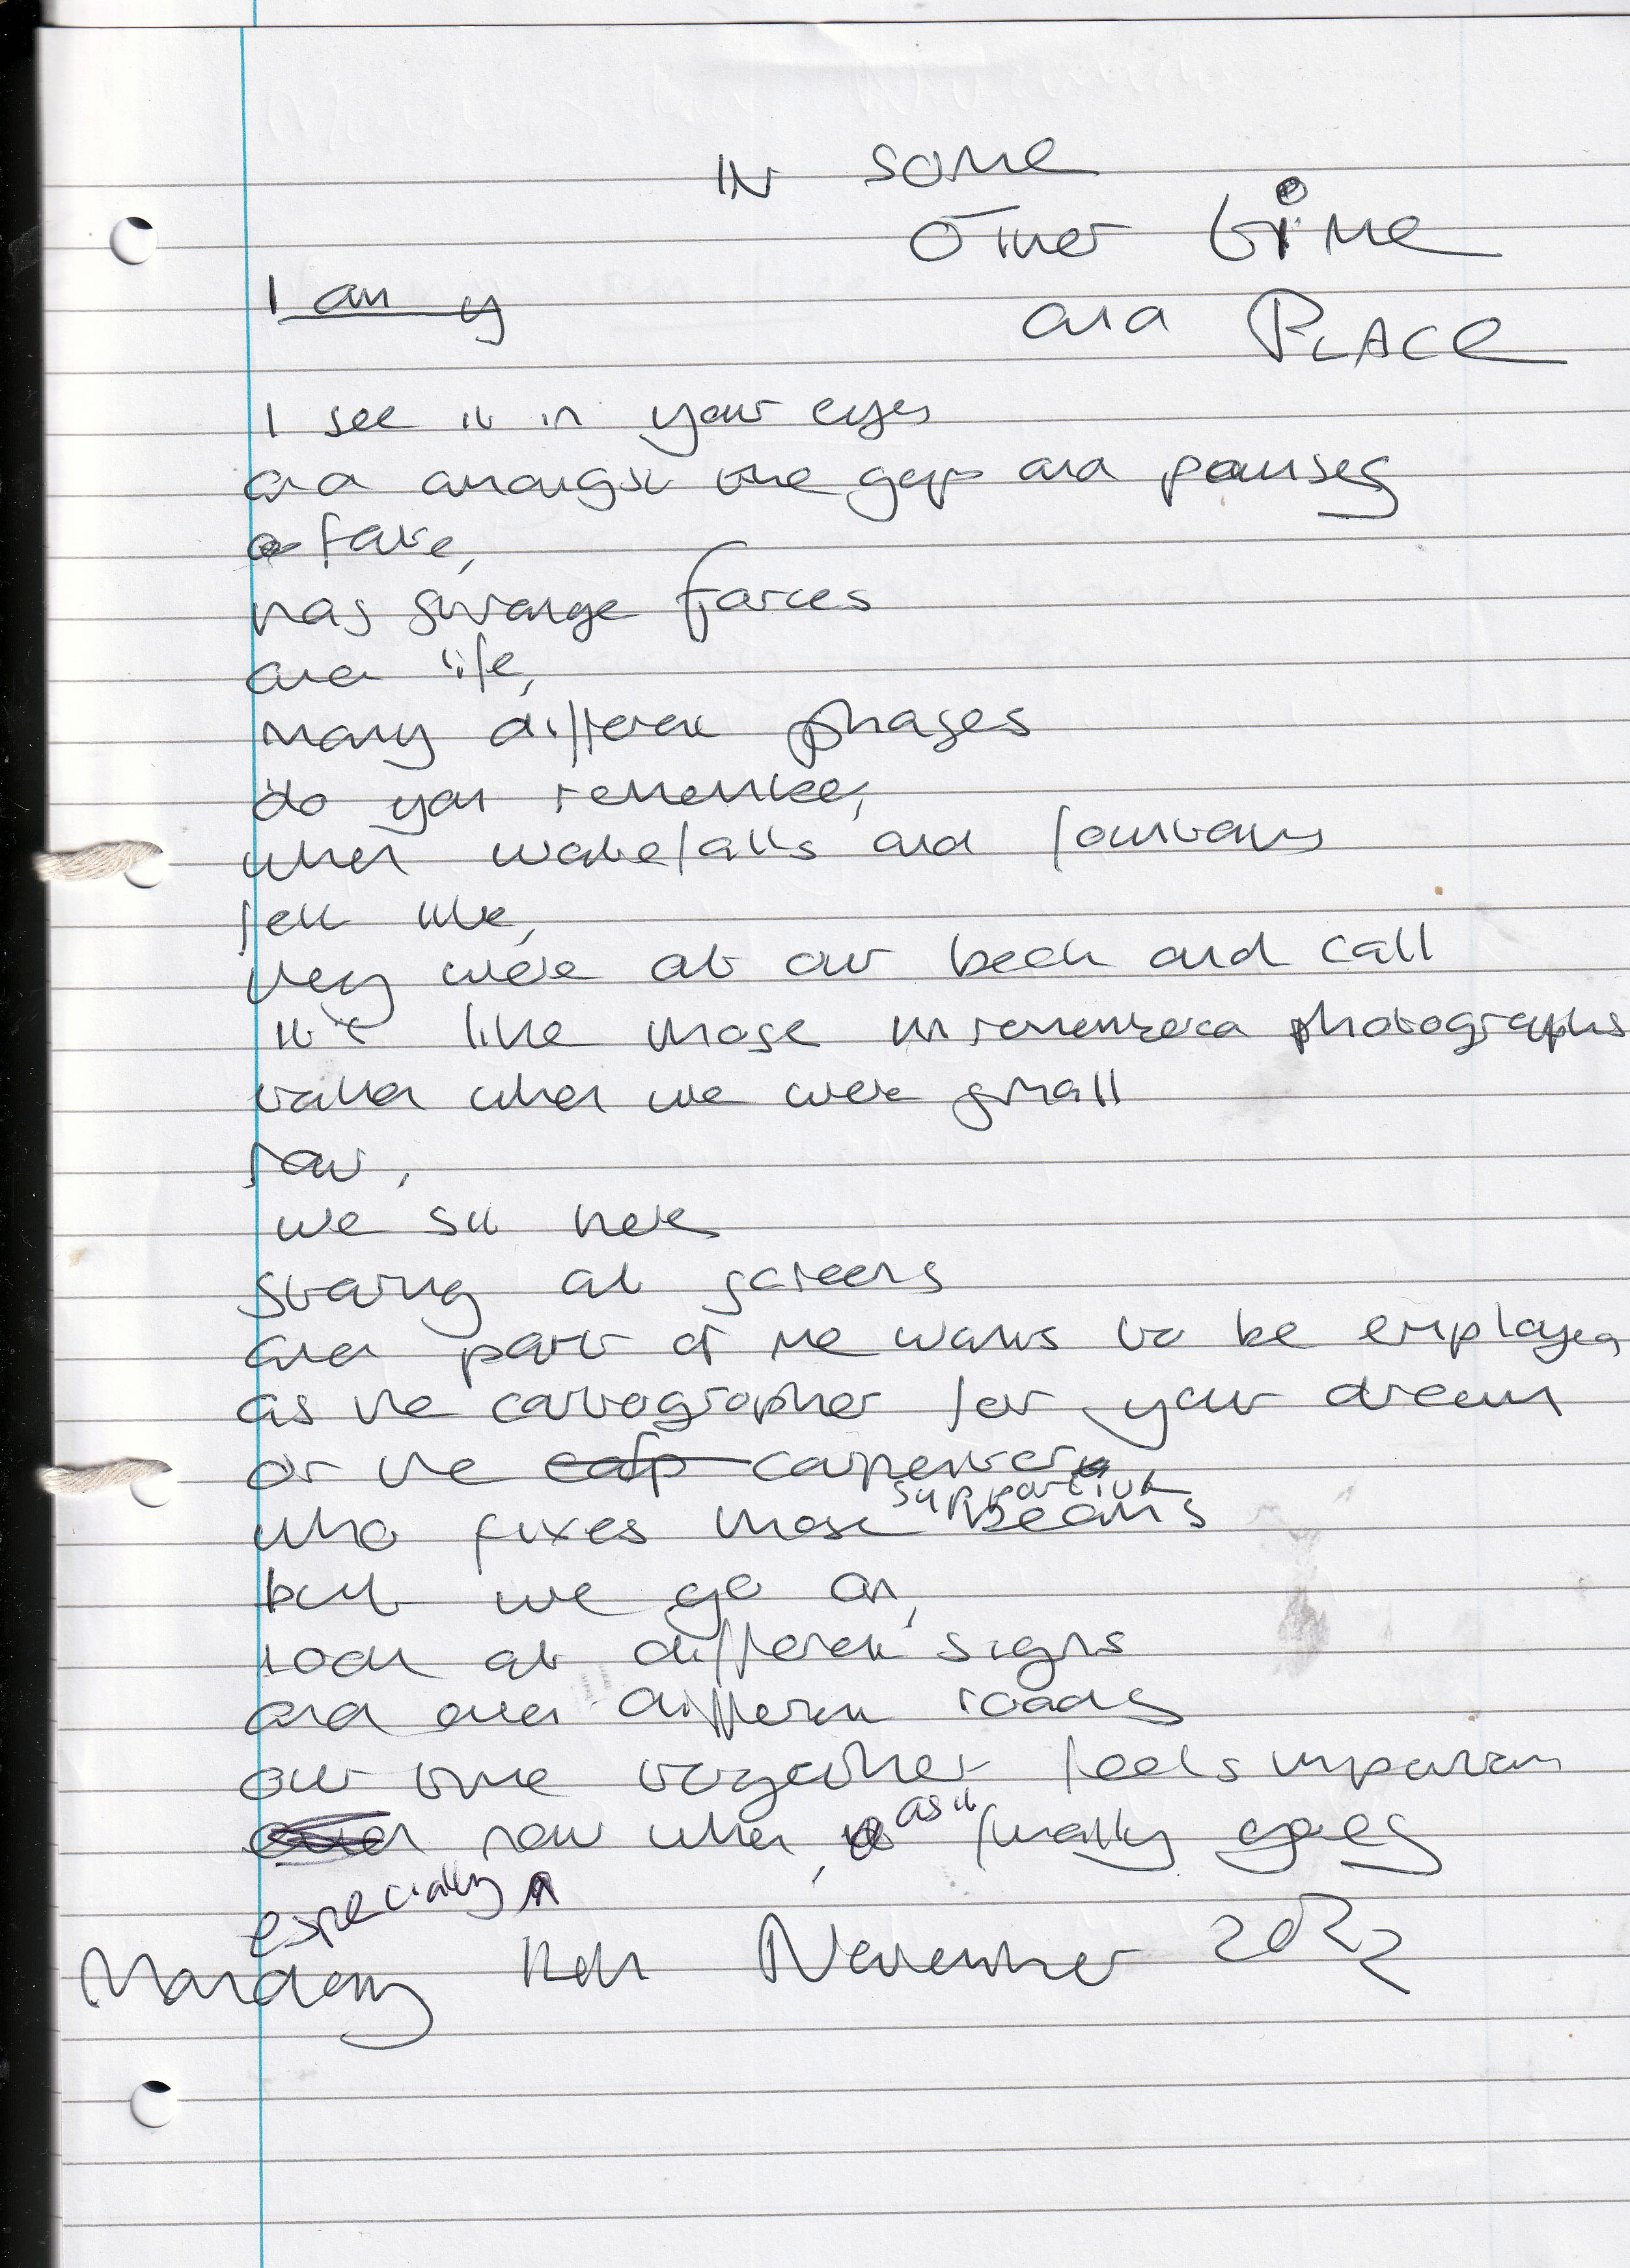 IN SOME
OTHER tiME
and PLACE
I am y
I see it in your eyes
and amongst the gaps and pauses
fate,
has strange forces
and life,
many different phases
do you remember,
when waterfalls and fountains
felt like,
they were at our beck and call
it's like those unremembered photographs
taken when we were small
now,
we sit here
staring at screens
and part of me wants to be employed
as the cartographer for your dream
or the cap carpenter
supportive
who fixes those beams
but we go on,
look at different signs
and over different roads
our time together feels important
now when, as it finally goes
especially
Monday November 2022